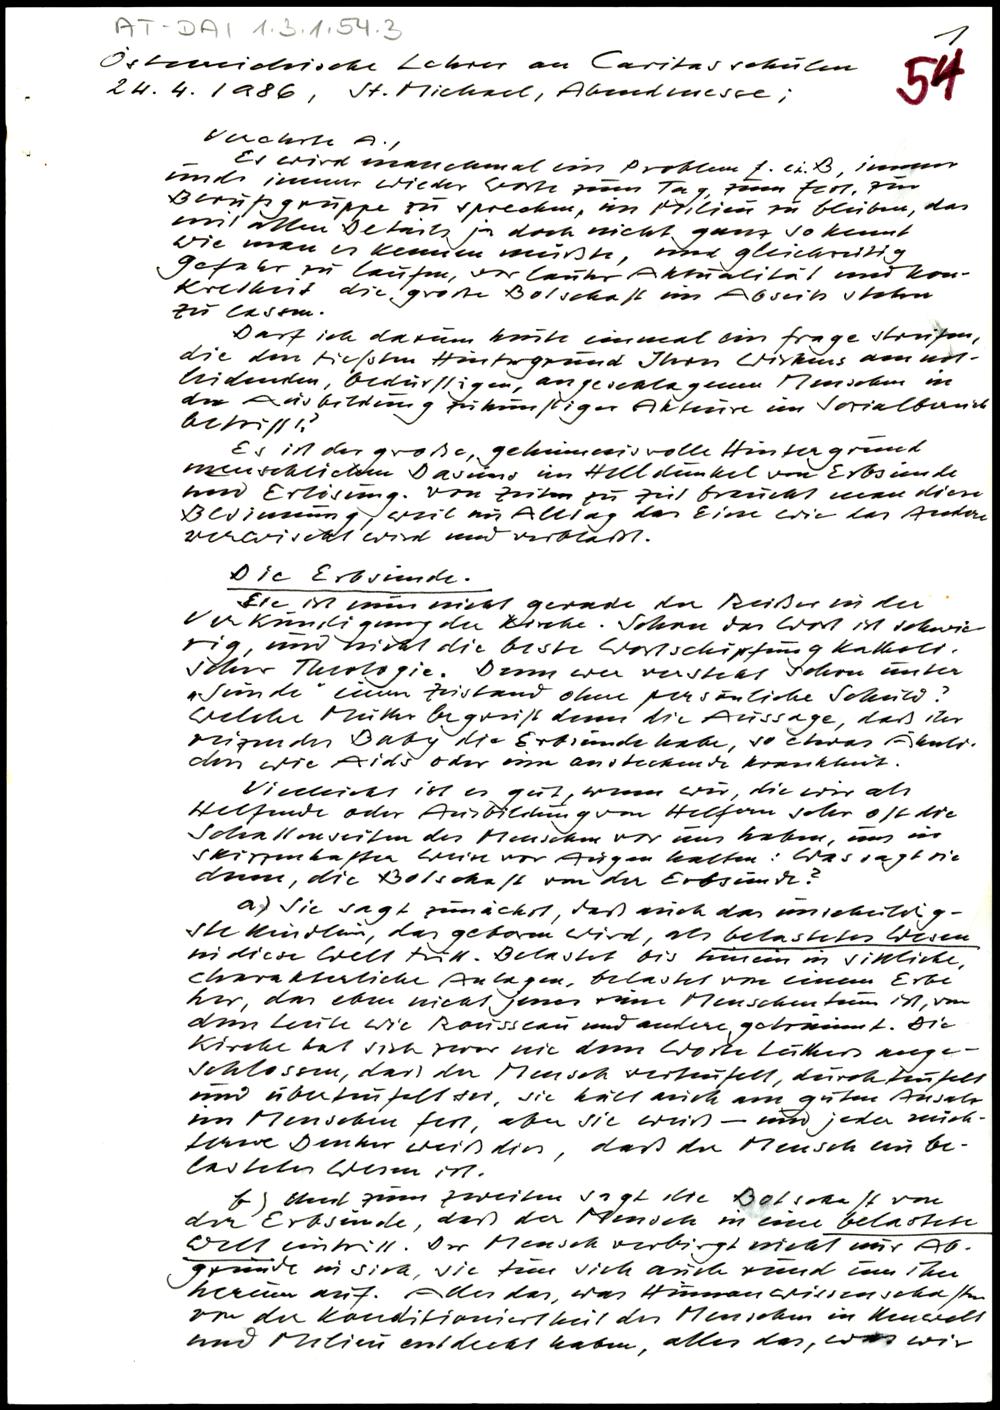 AT-DAI 1.3.1.54.3
1
54
Österreichische Lehrer an Caritasschulen
24. 4. 1986, St. Michael, Abendmesse;
Verehrte A.,
Es wird manchmal ein Problem f. ei. B, immer
und immer wieder Worte zum Tag, zum Fest, zur
Berufsgruppe zu sprechen, im Milieu zu bleiben, das
mit allen Details ja doch nicht ganz so kennt
wie man es kennen müßte, und gleichzeitig
Gefahr zu laufen, vor lauter Aktualität und Kon-
kretheit die große Botschaft im Abseits stehen
zu lassen.
Darf ich darum heute einmal ein Frage streifen,
die den tiefsten Hintergrund Ihres Wirkens am not-
leidenden, bedürftigen, angeschlagenen Menschen in
der Ausbildung zukünftiger Akteure im Sozialbereich
betrifft?
Es ist der große, geheimnisvolle Hintergrund
menschlichen Daseins im Helldunkel von Erbsünde
und Erlösung. Von Zeiten zu Zeit braucht man diese
Besinnung, weil im Alltag das Eine wie das Andere
verwischt wird und verblaßt.
Die Erbsünde.
Sie ist nun nicht gerade der Reißer in der
Verkündigung der Kirche. Schon das Wort ist schwie-
rig, und nicht die beste Wortschöpfung katholi-
scher Theologie. Denn wer versteht schon unter
"Sünde" einen Zustand ohne persönliche Schuld?
Welche Mutter begreift denn die Aussage, daß ihr
reizendes Baby die Erbsünde habe, so etwas Ähnli-
ches wie Aids oder eine ansteckende Krankheit.
Vielleicht ist es gut, wenn wir, die wir als
Helfende oder Ausbildung von Helfern sehr oft die
Schattenseiten des Menschen vor uns haben, uns in
skizzenhafter Weise vor Augen halten: Was sagt sie
denn, die Botschaft von der Erbsünde?
a) Sie sagt zunächst, daß auch das unschuldig-
ste Kindlein, das geboren wird, als belastetes Wesen
in diese Welt tritt. Belastet bis hinein in sittliche,
charakterliche Anlagen, belastet von einem Erbe
her, das eben nicht jenes reine Menschentum ist, von
dem Leute wie Rousseau und andere geträumt. Die
Kirche hat sich zwar nie dem Worte Luthers ange-
schlossen, daß der Mensch verteufelt, durchteufelt
und überteufelt sei, sie hält auch am guten Ansatz
im Menschen fest, aber sie weiß – und jeder nüch-
terne Denker weiß dies, daß der Mensch ein be-
lastetes Wesen ist.
b) Und zum zweiten sagt die Botschaft von
der Erbsünde, daß der Mensch in eine belastete
Welt eintritt. Der Mensch verbirgt nicht nur Ab-
gründe in sich, sie tun sich auch rund um ihn
herum auf. Alles das, was Humanwissenschaften
von der Konditioniertheit des Menschen in Umwelt
und Milieu entdeckt haben, alles das, was wir